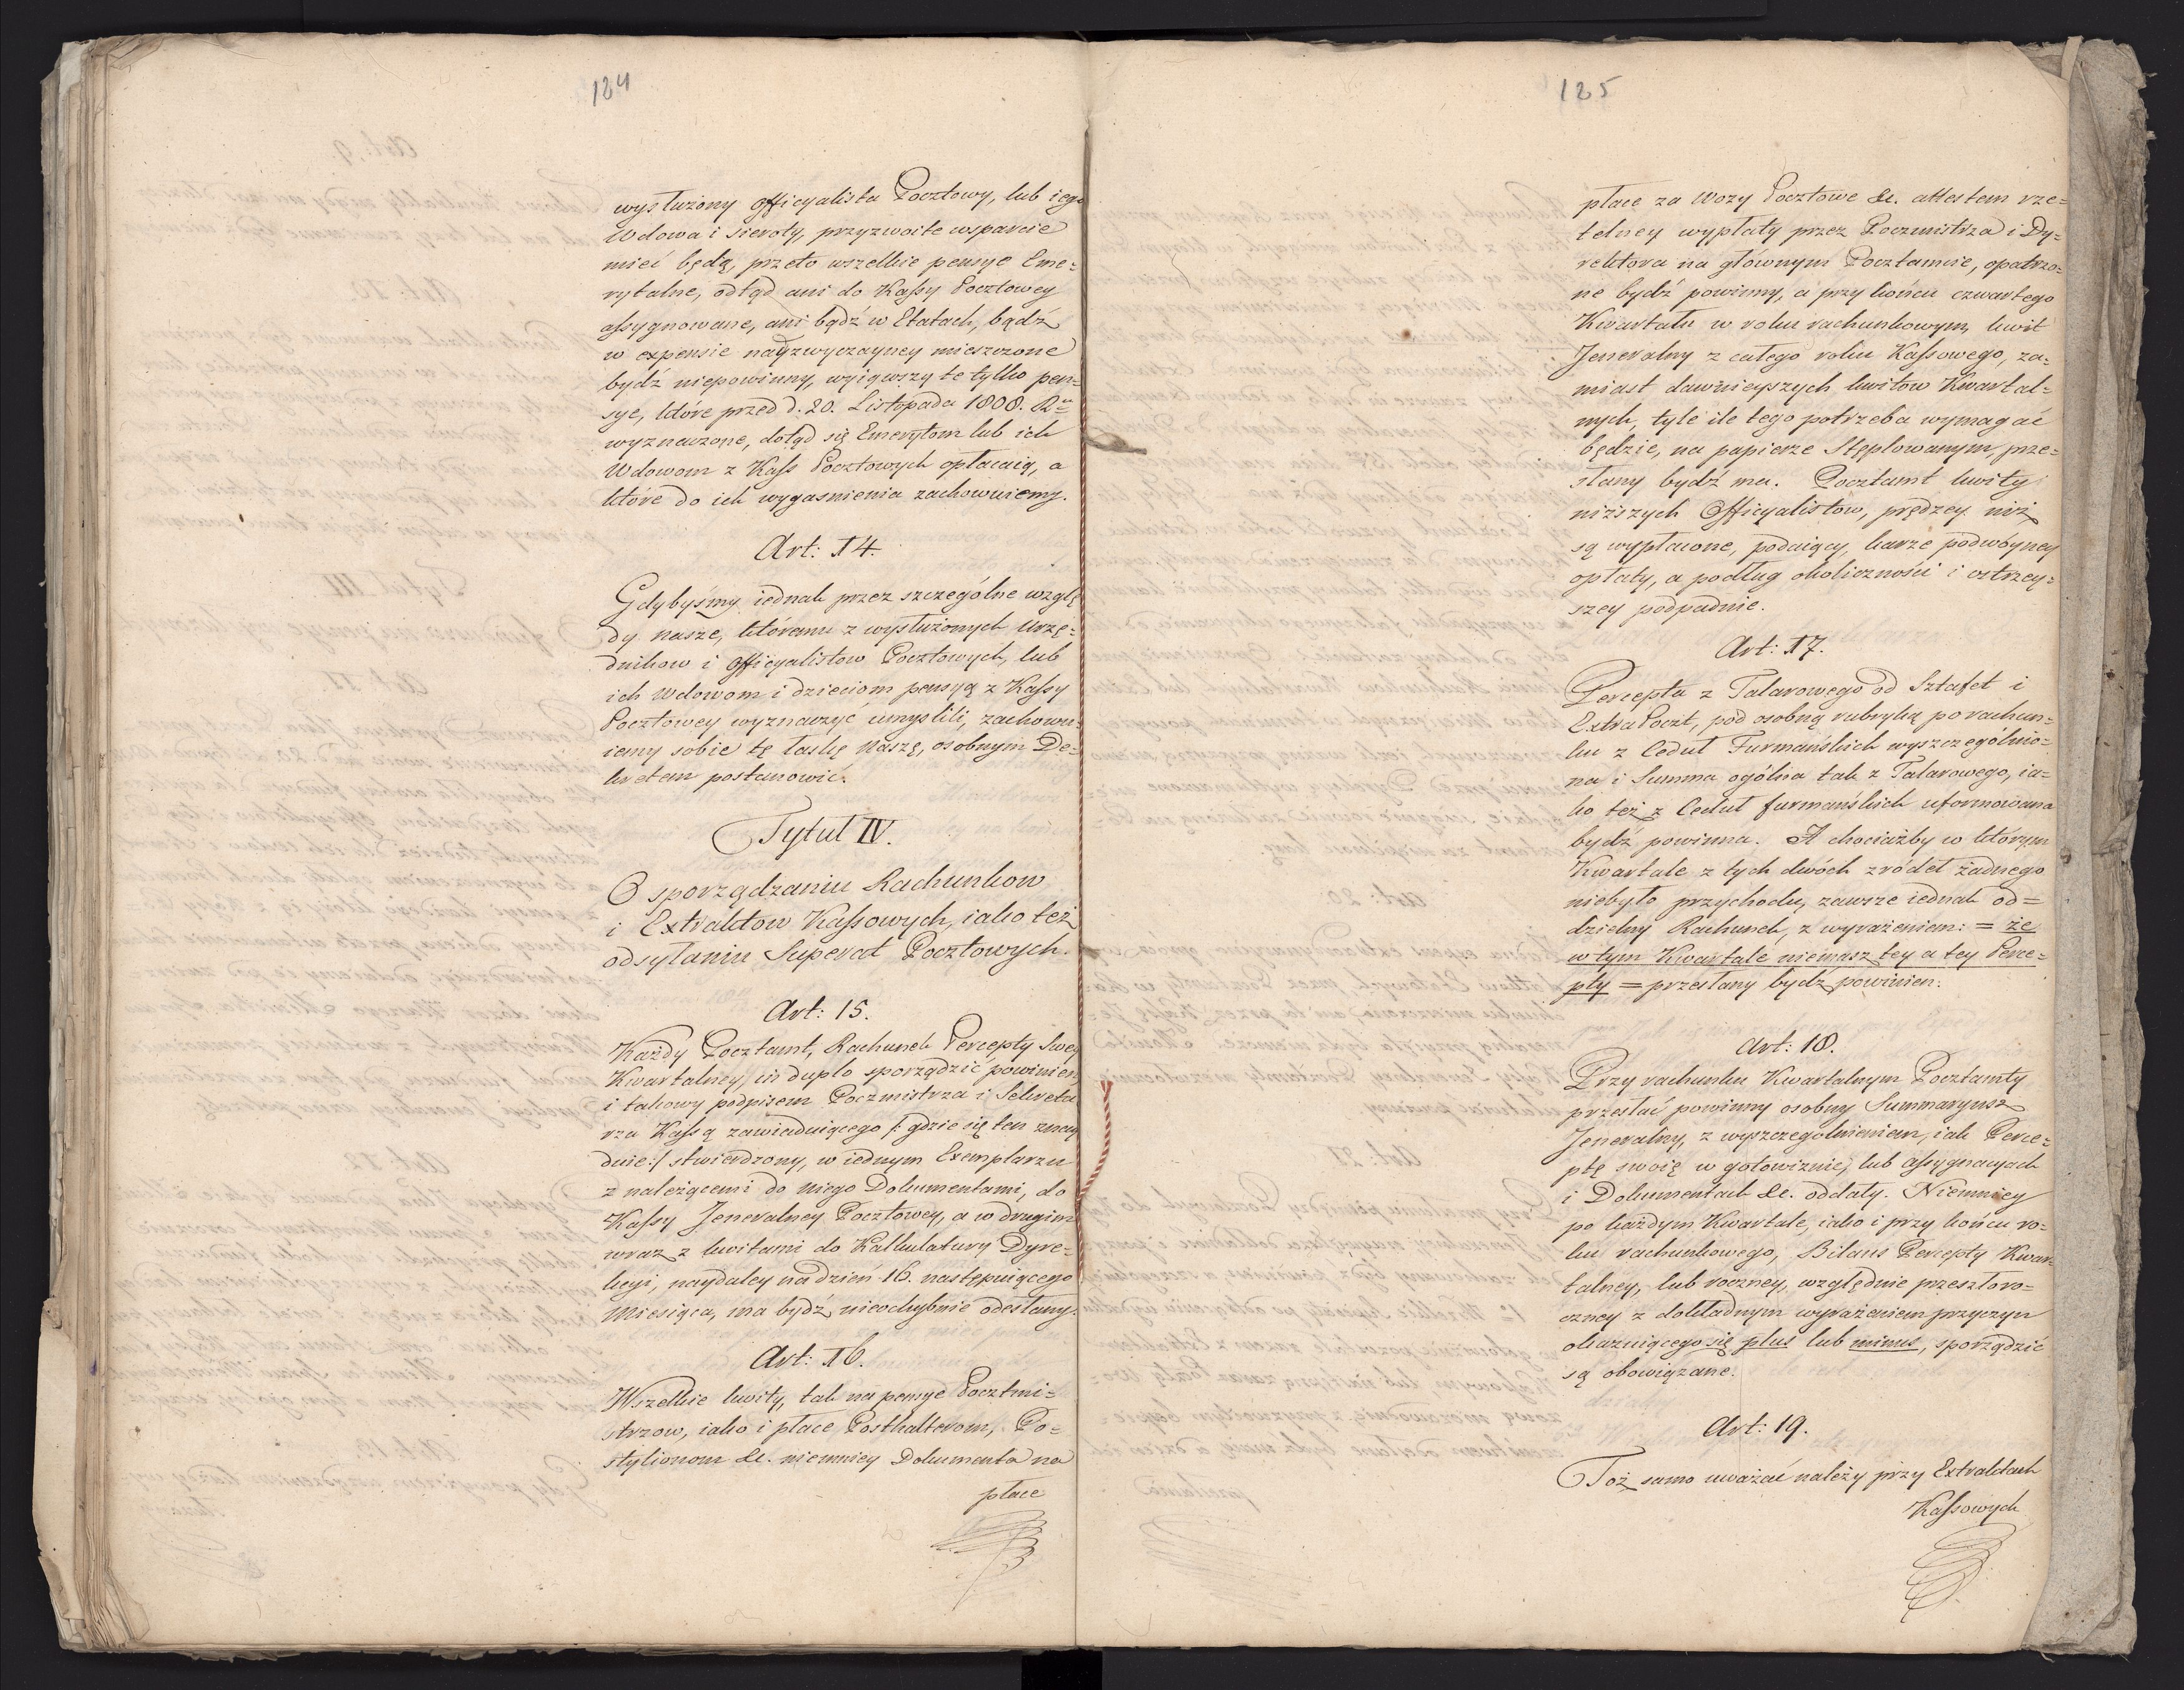 124
wysłużony Officyalista Pocztowy, lub iego
Wdowa i Sieroty, przyzwoite wsparcie
mieć będą, przeto wszelkie pensye Eme=
rytalne, odtąd ani do Kassy Pocztowey
assygnowane, ani bądź w Etatach, bądź
w expensie nadzwyczayney mieszczone
bydź niepowinny, wyiąwszy te tylko pen=
sye, które przed d. 20. Listopada 1808. R
wyznaczone, dotąd się Emerytom lub ich
Wdowom z Kass Pocztowych opłacaią, a
które do ich wygasnienia zachowuiemy.
Art: 14.
Gdybyśmy iednak przez szczególne wzglę
dy nasze, któremu z wysłużonych Urzę=
dnikow i Officyalistow Pocztowych, lub
ich Wdowom i dzieciom pensyą z Kassy
Pocztowey wyznaczyć umyslili, zachowu=
iemy sobie tę łaskę Naszą, osobnym De=
kretem postanowić.
Tytuł IV.
O sporządzaniu Rachunkow
i Extraktow Kassowych, iako też
odsyłaniu Superat Pocztowych.
Art: 15.
Każdy Pocztamt, Rachunek Percepty Swey
Kwartalney, in duplo sporządzić powinien
i takowy podpisem Poczmistrza i Sekreta
rza Kassą zawiaduiącego /: gdzie się ten znay
duie:/ stwierdzony, w iednym Exemplarzu
z należącemi do niego Dokumentami, do
Kassy Jeneralney Pocztowey, a w drugim
wraz z kwitami do Kalkulatury Dyre=
kcyi, naydaley na dzień 16. następuiącego
Miesiąca, ma bydź nieochybnie odesłany.
Art: 16.
Wszelkie kwity, tak na pensye Pocztmi=
strzow, iako i płace Posthalterom, Po=
stylionom &c. niemniey Dokumenta na
płace
125
płace za Wozy Pocztowe &c. attestem rze=
telney wypłaty przez Poczmistrza i Dy=
rektora na głownym Pocztamcie, opatrzo=
ne bydź powinny, a przy końcu czwartego
Kwartału w roku rachunkowym, kwit
Jeneralny z całego roku Kassowego, za=
miast dawnieyszych kwitow Kwartal=
nych, tyle ile tego potrzeba wymagać
będzie, na papierze Stęplowanym, prze=
słany bydź ma. Pocztamt kwity
niższych Officyalistow, prędzey niż
są wypłacone, podaiący, karze podwóyney
opłaty, a podług okoliczności i ostrzey=
szey podpadnie.
Art: 17.
Percepta z Talarowego od Sztafet i
ExtraPoczt, pod osobną rubryką po rachun=
ku z Ceduł Furmańskich wyszczególnio=
na i Summa ogólna tak z Talarowego, ia=
ko też z Ceduł furmańskich uformowana
bydź powinna. A chociażby w którym
Kwartale z tych dwóch zródeł żadnego
niebyło przychodu, zawsze iednak od=
dzielny Rachunek, z wyrażeniem: = że
w tym Kwartale niemasz tey a tey Perce=
pty = przesłany bydź powinien.
Art: 18.
Przy rachunku Kwartalnym Pocztamty
przesłać powinny osobny Summaryusz
Jeneralny, z wyszczególnieniem, iak Perce=
ptę swoię w gotowiznie, lub assygnacyach
i Dokumentach &c. oddały. Niemniey
po każdym Kwartale, iako i przy końcu ro=
ku rachunkowego, Bilans Percepty Kwar=
talney, lub roczney, względnie przeszłoro=
czney z dokładnym wyrażeniem przyczyn
okazuiącego się plus lub minus, sporządzić
są obowiązane.
Art: 19.
Toż samo uważać należy przy Extraktach
Kassowych